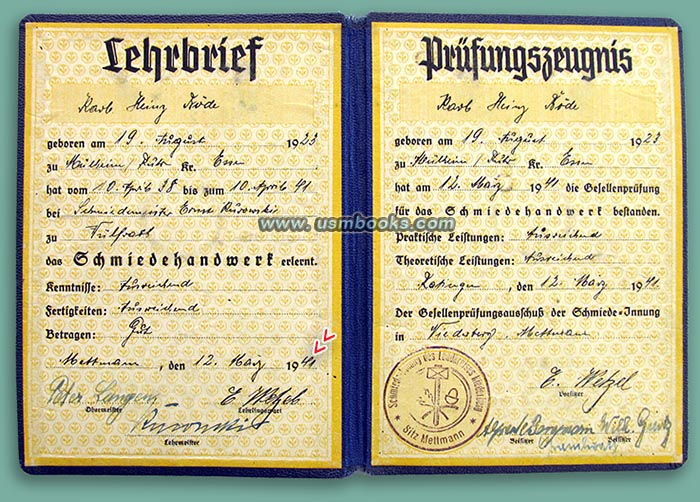 Lehrbrief
Karl Heinz Röde
geboren am 19. August 1923
zu Mülheim/Ruhr Kr. Essen
hat vom 10. April 38 bis zum 10. April 41
bei Schmiedemeister Ernst
zu Wülfrath
das Schmiedehandwerk erlernt.
Kenntnisse: Ausreichend
Fertigkeiten: Ausreichend
Betragen: Gut
Mettmann, den 12. März 1941
Peter Langen E. Wetzel
Obermeister Lehrlingswart
Lehrmeister
Prüfungszeugnis
Karl Heinz Röde
geboren am 19. August 1923
zu Mülheim/Ruhr Kr. Essen
hat am 12. März 1941 die Gesellenprüfung
für das Schmiedehandwerk bestanden.
Praktische Leistungen: Ausreichend
Theoretische Leistungen: Ausreichend
Ratingen, den 12. März 1941
Der Gesellenprüfungsausschuß der Schmiede-Innung
in Mettmann
E. Wetzel
Vorsitzer
Alfred Bergmann Willi
Beisitzer Beisitzer
Sitz Mettmann
www.usmbooks.com